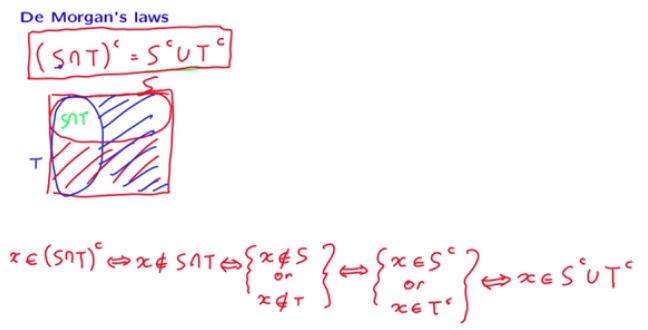 De Morgan's laws
(S∩T)ᶜ = Sᶜ∪Tᶜ
S
S∩T
T
x∈(S∩T)ᶜ ⇔ x∉S∩T ⇔ {x∉S or x∉T} ⇔ {x∈Sᶜ or x∈Tᶜ} ⇔ x∈Sᶜ∪Tᶜ